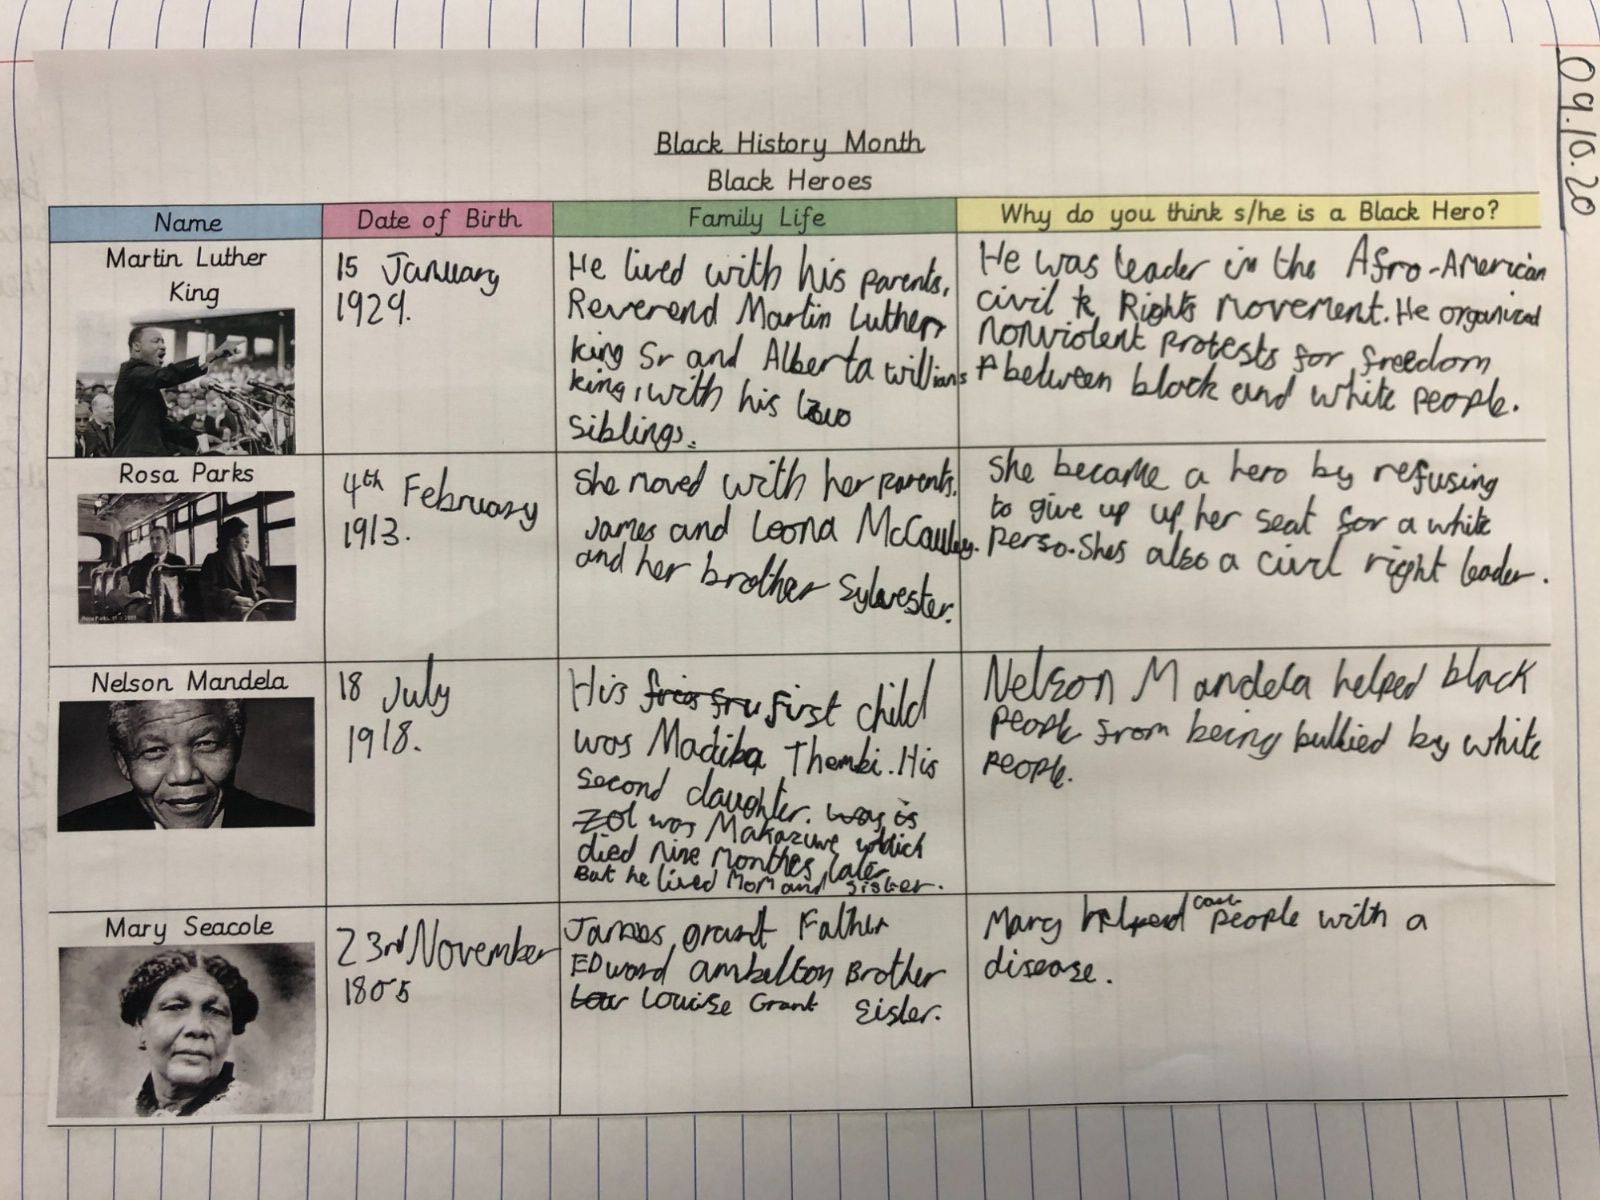 09.10.20
Black History Month
Black Heroes
Name
Date of Birth
Family Life
Why do you think s/he is a Black Hero?
Martin Luther
King
15 January
1929.
He lived with his parents,
Reverend Martin Luther
king Sr and Alberta willians
king, with his two
siblings.
He was leader in the Afro-American
civil Rights movement. He organized
nonviolent protests for freedom
between black and white people.
Rosa Parks
4th February
1913.
She moved with her parents.
James and Leona McCauley.
and her brother Sylvester.
She became a hero by refusing
to give up up her seat for a white
perso. Shes also a civil right leader.
Nelson Mandela
18 July
1918.
His first child
was Madiba Thembi. His
second daughter. was is
was Makaziwe which
died nine monthes later
But he lived Mom and sister.
Nelson Mandela helped black
people from being bullied by white
people.
Mary Seacole
23rd November
1805
James grant Father
EDward ambelton Brother
Louise Grant Sister.
Mary helped people with a
disease.